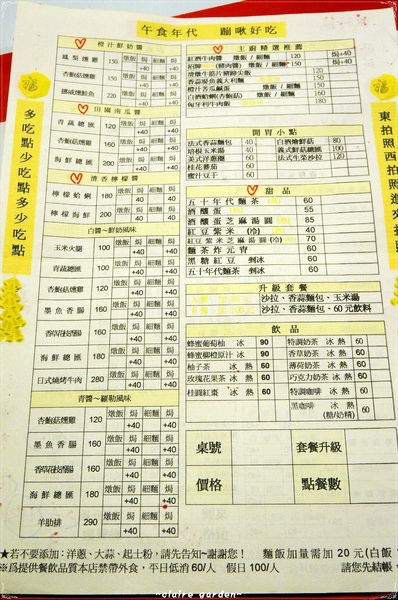 午食年代 蹦啾好吃
多吃點少吃點多少吃點
橙汁鮮奶醬
鳳梨燻雞 150 燉飯 焗+40 細麵 焗+40
杏鮑菇燻雞 150 燉飯 焗+40 細麵 焗+40
挪威燻鮭魚 220 燉飯 焗+40 細麵 焗+40
田園南瓜醬
青蔬總匯 120 燉飯 焗+40 細麵 焗+40
杏鮑菇燻雞 160 燉飯 焗+40 細麵 焗+40
海鮮總匯 200 燉飯 焗+40 細麵 焗+40
清香檸檬醬
檸檬蛤蜊 180 燉飯 焗+40 細麵 焗+40
檸檬海鮮 200 燉飯 焗+40 細麵 焗+40
白醬~鮮奶風味
玉米火腿 100 燉飯 焗+40 細麵 焗+40
青蔬總匯 100 燉飯 焗+40 細麵 焗+40
杏鮑菇燻雞 120 燉飯 焗+40 細麵 焗+40
墨魚香腸 160 燉飯 焗+40 細麵 焗+40
160 燉飯 焗+40 細麵 焗+40
海鮮總匯 180 燉飯 焗+40 細麵 焗+40
日式燒烤牛肉 280 燉飯 焗+40 細麵 焗+40
青醬~羅勒風味
杏鮑菇燻雞 120 燉飯 焗+40 細麵 焗+40
墨魚香腸 160 燉飯 焗+40 細麵 焗+40
160 燉飯 焗+40 細麵 焗+40
海鮮總匯 180 燉飯 焗+40 細麵 焗+40
羊肋排 290 燉飯 焗+40 細麵 焗+40
主廚精選推薦
紅酒牛肉醬 燉飯 / 細麵 120 焗+40
招牌 (豬肉醬) 燉飯 / 細麵 150 焗+40
清燉牛筋片豬腳尖飯 120
香蒜鯷魚義大利麵 150
橙汁苦瓜鹹蛋 燉飯 / 細麵 150
白酒蛤蜊(杏鮑菇) 燉飯 / 細麵 160
匈牙利牛肉飯 180
開胃小點
法式香蒜麵包 40 白酒燴鮮菇 80
培根玉米湯 40 義式鮮菇總匯 100
美式洋蔥圈 60 法式生菜沙拉 120
桂花蕃茄 60
蜜汁豆干 60
甜品
五十年代麵茶 (熱) 60
酒釀蛋 55
酒釀蛋芝麻湯圓 (熱) 85
紅豆紫米 (冷) (熱) 40
紅豆紫米芝麻湯圓 (冷) (熱) 70
麵茶炸元宵 60
黑糖紅豆 剉冰 60
五十年代麵茶 剉冰 60
升級套餐
沙拉、香蒜麵包、玉米湯
沙拉、香蒜麵包、60元飲料
飲品
蜂蜜葡萄柚 冰 90 特調奶茶 冰 熱 60
蜂蜜柳橙原汁 冰 90 香草奶茶 冰 熱 60
柚子茶 冰 熱 60 薄荷奶茶 冰 熱 60
玫瑰花果茶 冰 熱 60 巧克力奶茶 冰 熱 60
桂圓紅棗 熱 60 特調咖啡 冰 熱 60
黑咖啡 冰 熱 60
(糖/奶精)
桌號 套餐升級
價格 點餐數
東拍照西拍照進來拍照
★若不要添加:洋蔥、大蒜、起士粉,請先告知~謝謝您! 麵飯加量需加 20 元(白飯
※爲提供餐飲品質本店禁帶外食,平日低消 60/人 假日 100/人 請您先結帳
~claire garden~